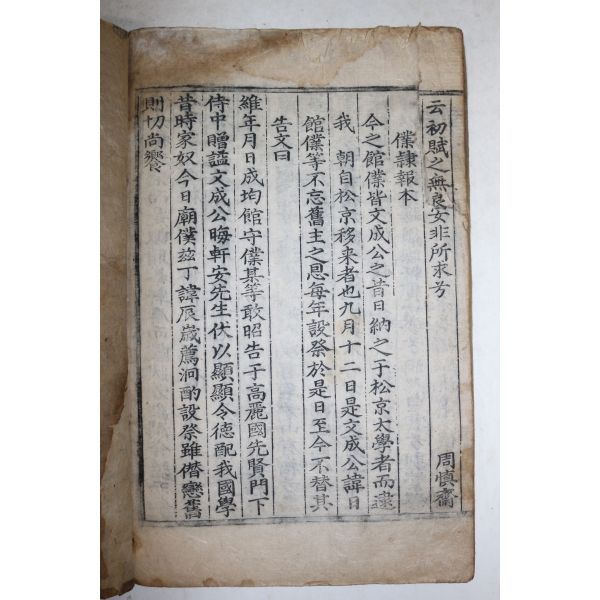 云初賦之無良安非所求兮
周愼齋
僕隷報本
今之館僕皆文成公之昔日納之于松京太學者而逮
我　朝自松京移来者也九月十二日是文成公諱日
館僕等不忘舊主之恩每年設祭於是日至今不替其
告文曰
維年月日成均館守僕某等敢昭告于高麗國先賢門下
侍中贈謚文成公晦軒安先生伏以顯顯令德配我國學
昔時家奴今日廟僕玆丁諱辰歲薦泂酌設祭雖僭戀舊
則切尚饗